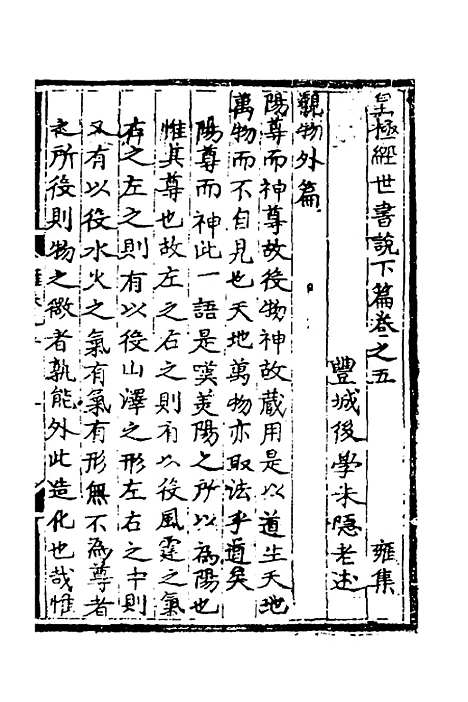 皇極經世書說下篇卷之五　　雍集
豐城後學朱隱老述
觀物外篇
陽尊而神尊故役物神故藏用是以道生天地
萬物而不自見也天地萬物亦取法乎道矣
陽尊而神此一語是嘆美陽之所以為陽也
惟其尊也故左之右之則有以役風霆之氣
右之左之則有以役山澤之形左右之中則
又有以役水火之氣有氣有形無不為尊者
之所役則物之微者孰能外此造化也哉惟